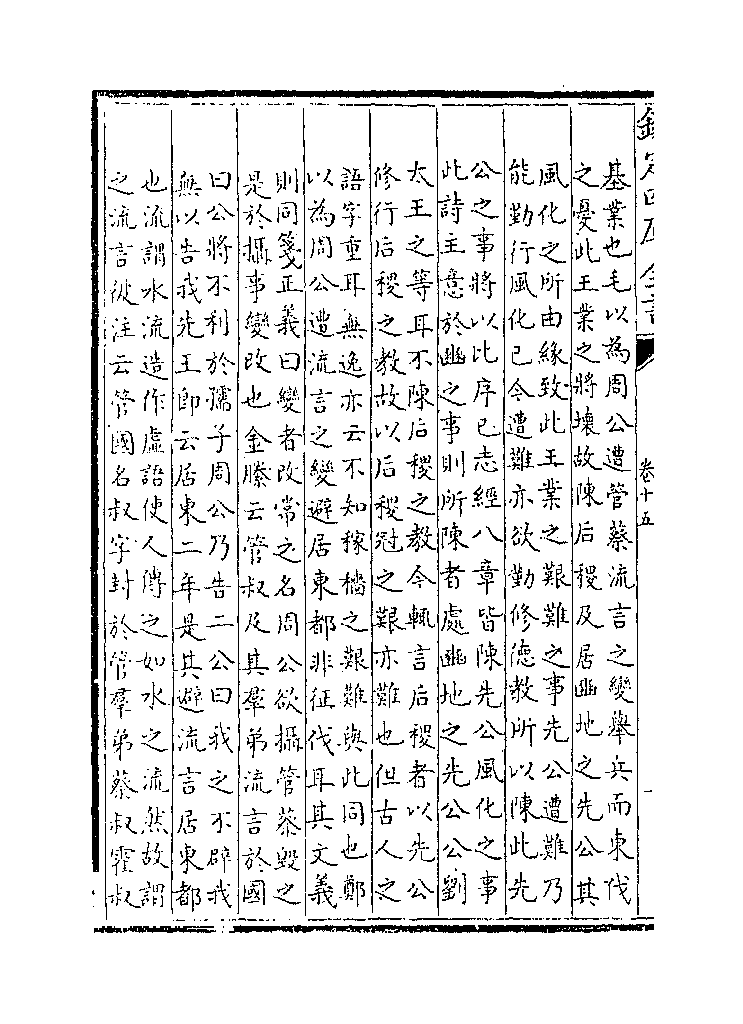 欽定四庫全書
卷十五
基業也毛以為周公遭管蔡流言之變舉兵而東伐
之憂此王業之將壞故陳后稷及居豳地之先公其
風化之所由緣致此王業之艱難之事先公遭難乃
能勤行風化已今遭難亦欲勤修德教所以陳此先
公之事將以比序已志經八章皆陳先公風化之事
此詩主意於豳之事則所陳者處豳地之先公公劉
太王之等耳不陳后稷之教今輒言后稷者以先公
修行后稷之教故以后稷冠之艱亦難也但古人之
語字重耳無逸亦云不知稼穡之艱難與此同也鄭
以為周公遭流言之變避居東都非征伐耳其文義
則同箋正義曰變者改常之名周公欲攝管蔡毀之
是於攝事變改也金縢云管叔及其羣弟流言於國
曰公將不利於孺子周公乃告二公曰我之不辟我
無以告我先王即云居東二年是其避流言居東都
也流謂水流造作虛語使人傳之如水之流然故謂
之流言彼注云管國名叔字封於管羣弟蔡叔霍叔